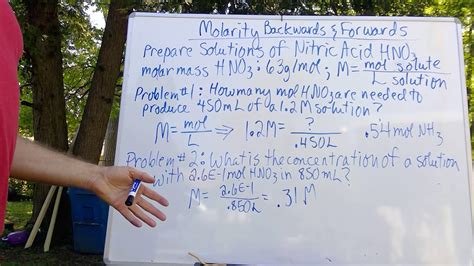 Molarity Backwards & Forwards
Prepare Solutions of Nitric Acid HNO₃
molar mass HNO₃: 63g/mol; M = mol solute / L solution
Problem #1: How many mol HNO₃ are needed to
produce 450mL of a 1.2M solution?
M = mol / L ⇒ 1.2M = ? / .450L .54 mol NH₃
Problem #2: What is the concentration of a solution
with 2.6E-1 mol HNO₃ in 850mL?
M = 2.6E-1 / .850L = .31 M